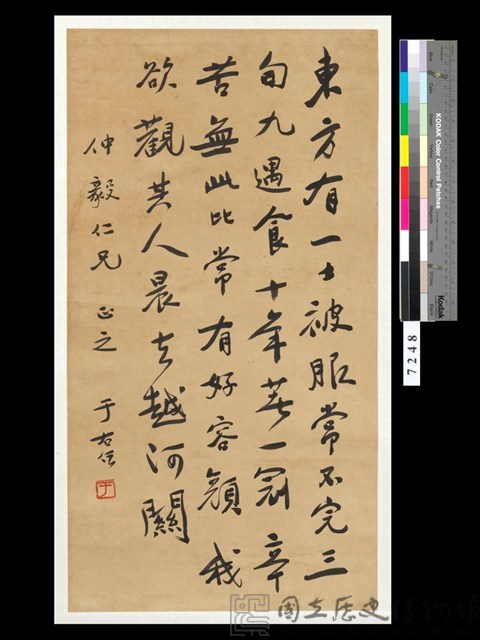 東方有一士被服常不完三
旬九遇食十年著一冠辛
苦無此比常有好容顏我
欲觀其人晨去越河關
仲毅仁兄 正之 于右任
KODAK Color Control Patches
Kodak
7248
國立歷史博物館